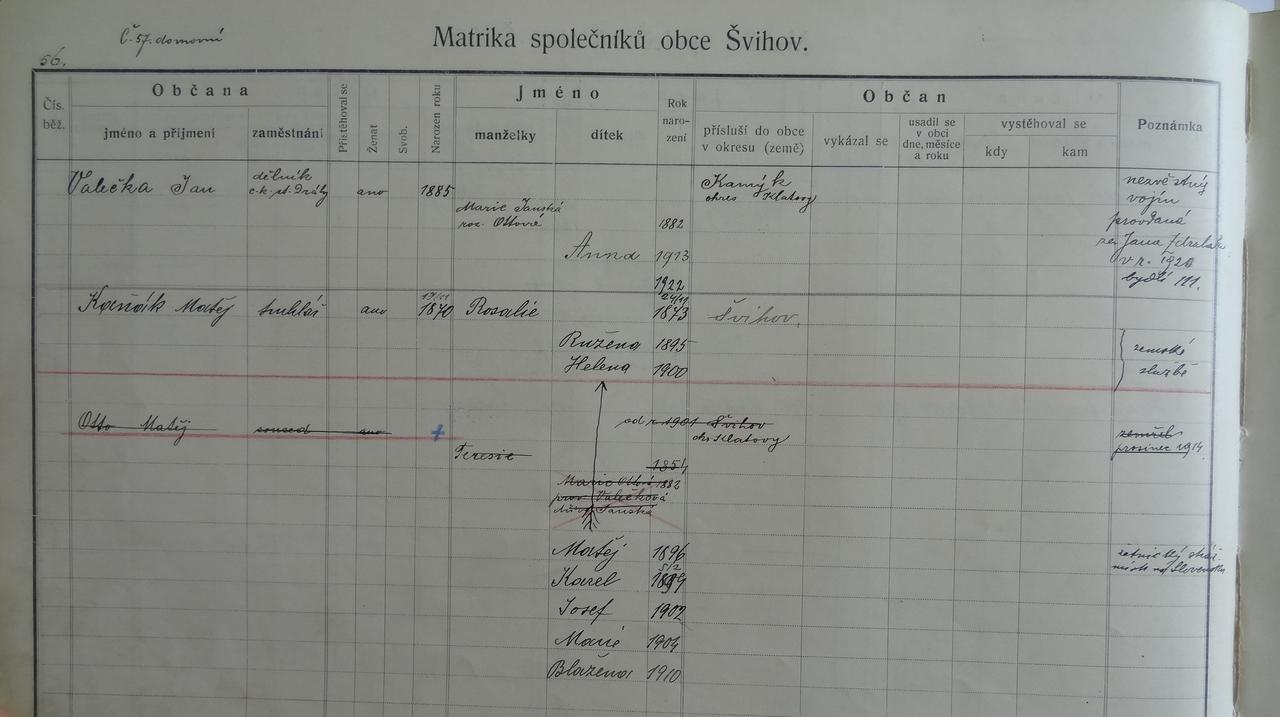 Č. 57. domovní
56.
Matrika společníků obce Švihov.
Čís. běž.
Občana
jméno a přijmení
zaměstnání
Přistěhoval se
Ženat
Svob.
Narozen roku
Jméno
manželky
dítek
Rok naro- zení
Občan
přísluší do obce v okresu (země)
vykázal se
usadil se v obci dne, měsíce a roku
vystěhoval se
kdy
kam
Poznámka
Valečka Jan
dělník
c. k. st. Dráhy
ano
1885
Kamýk
okres Klatovy
nezvěstný
vojín
Marie Janská
roz. Ottové
1882
provdaná
za Jana
Anna 1913
v r. 1920
bydlí 111.
1922
Matěj truhlář ano 19/11 1870 Rosalie 24/11 1873 Švihov.
Ružena 1895
Helena 1900
zemské
službě
Otto Matěj soused ano + od r. 1901 Švihov
okr Klatovy
zemřel
prosinec 1914
Teresie
1854
Marie Ottová 1882
prov. Valečková
Janská
Matěj 1896
četnický
na Slovensku
Karel 5/2 1899
Josef 1902
Marie 1904
Blažena 1910